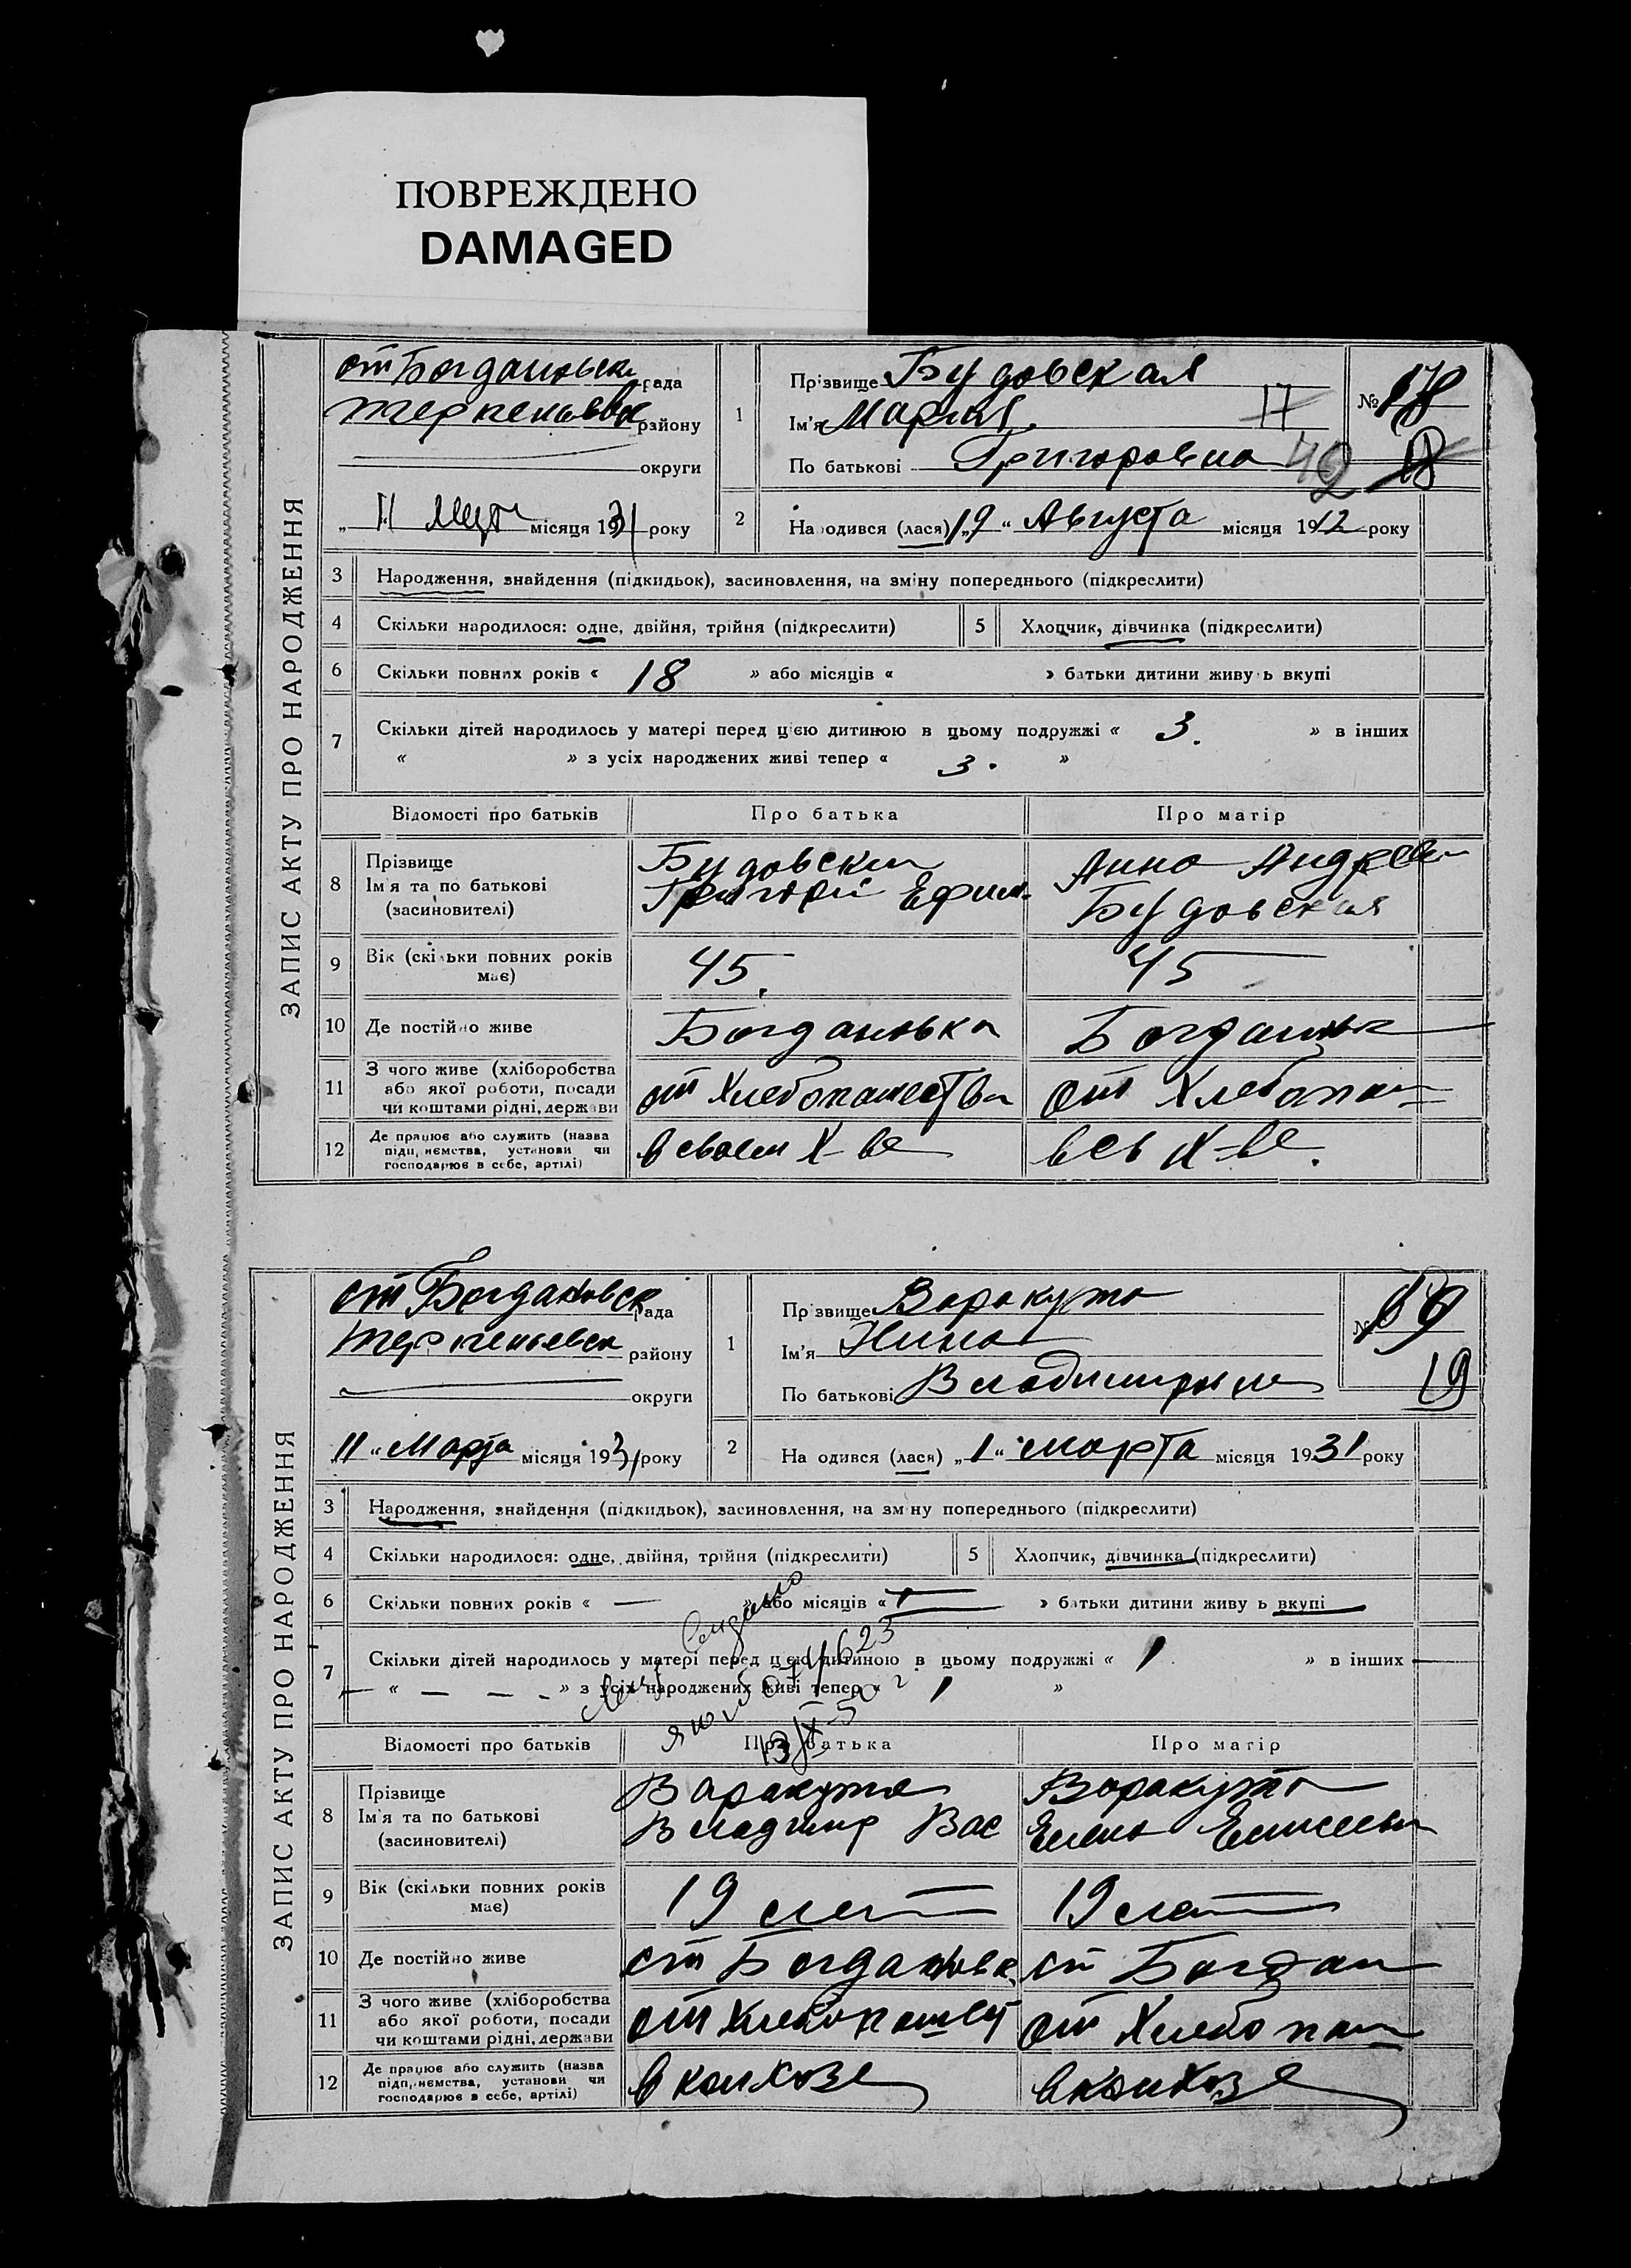 ПОВРЕЖДЕНО
DAMAGED
ЗАПИС АКТУ ПРО НАРОДЖЕННЯ
ст Богдановск рада
района району
округи
„ 11 Март місяця 1931 року
1
Прізвище Будовская
Ім'я Мария
По батькові Григоровна
17
42
№ 18
18
2
Народився (лася) „19“ Августа місяця 1912 року
3 Народження, знайдення (підкидьок), засиновлення, на зміну попереднього (підкреслити)
4 Скільки народилося: одне, двійня, трійня (підкреслити) 5 Хлопчик, дівчинка (підкреслити)
6 Скільки повних років « 18 » або місяців « » батьки дитини живуть вкупі
7 Скільки дітей народилось у матері перед цією дитиною в цьому подружжі « 3. » в інших
« » з усіх народжених живі тепер « 3. »
Відомості про батьків Про батька Про матір
8 Прізвище
Ім'я та по батькові
(засиновителі)
Будовский
Григорий Ефим.
Анна Андреев
Будовская
9 Вік (скільки повних років має) 45. 45
10 Де постійно живе Богдановка Богдановка
11 З чого живе (хліборобства
або якої роботи, посади
чи коштами рідні, держави
от Хлебопашества от Хлебопаш
12 Де працює або служить (назва
підприємства, установи чи
господарює в себе, артілі)
в своем х-ве в св х-ве.
ЗАПИС АКТУ ПРО НАРОДЖЕННЯ
ст Богдановск рада
району
округи
11 „ Марта місяця 1931 року
1
Прізвище Варакута
Ім'я Нина
По батькові Владимировна
№ 19
19
2
Народився (лася) „1“ марта місяця 1931 року
3 Народження, знайдення (підкидьок), засиновлення, на зміну попереднього (підкреслити)
4 Скільки народилося: одне, двійня, трійня (підкреслити) 5 Хлопчик, дівчинка (підкреслити)
6 Скільки повних років « — » або місяців « » батьки дитини живуть вкупі
7 Скільки дітей народилось у матері перед цією дитиною в цьому подружжі « 1 » в інших —
— « — — — » з усіх народжених живі тепер « 1 »
Відомості про батьків Про батька Про матір
8 Прізвище
Ім'я та по батькові
(засиновителі)
Варакута
Владимир Вас
Варакута
Елена Елисеевн
9 Вік (скільки повних років має) 19 лет 19 лет
10 Де постійно живе ст Богдановк. ст Богдан
11 З чого живе (хліборобства
або якої роботи, посади
чи коштами рідні, держави
от Хлебопашест от Хлебопаш
12 Де працює або служить (назва
підприємства, установи чи
господарює в себе, артілі)
в колхозе в колхозе